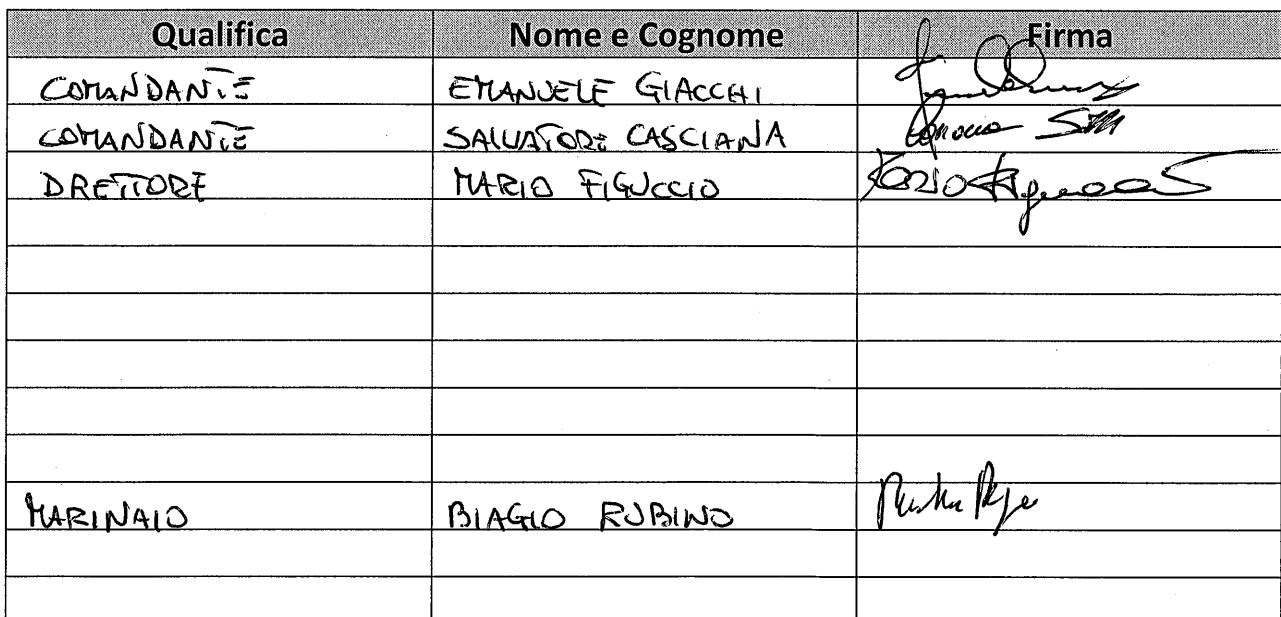 Qualifica Nome e Cognome Firma
COMANDANTE EMANUELE GIACCHI
COMANDANTE SALVATORE CASCIANA
DRETTORE MARIO FIGUCCIO
MARINAIO BIAGIO RUBINO